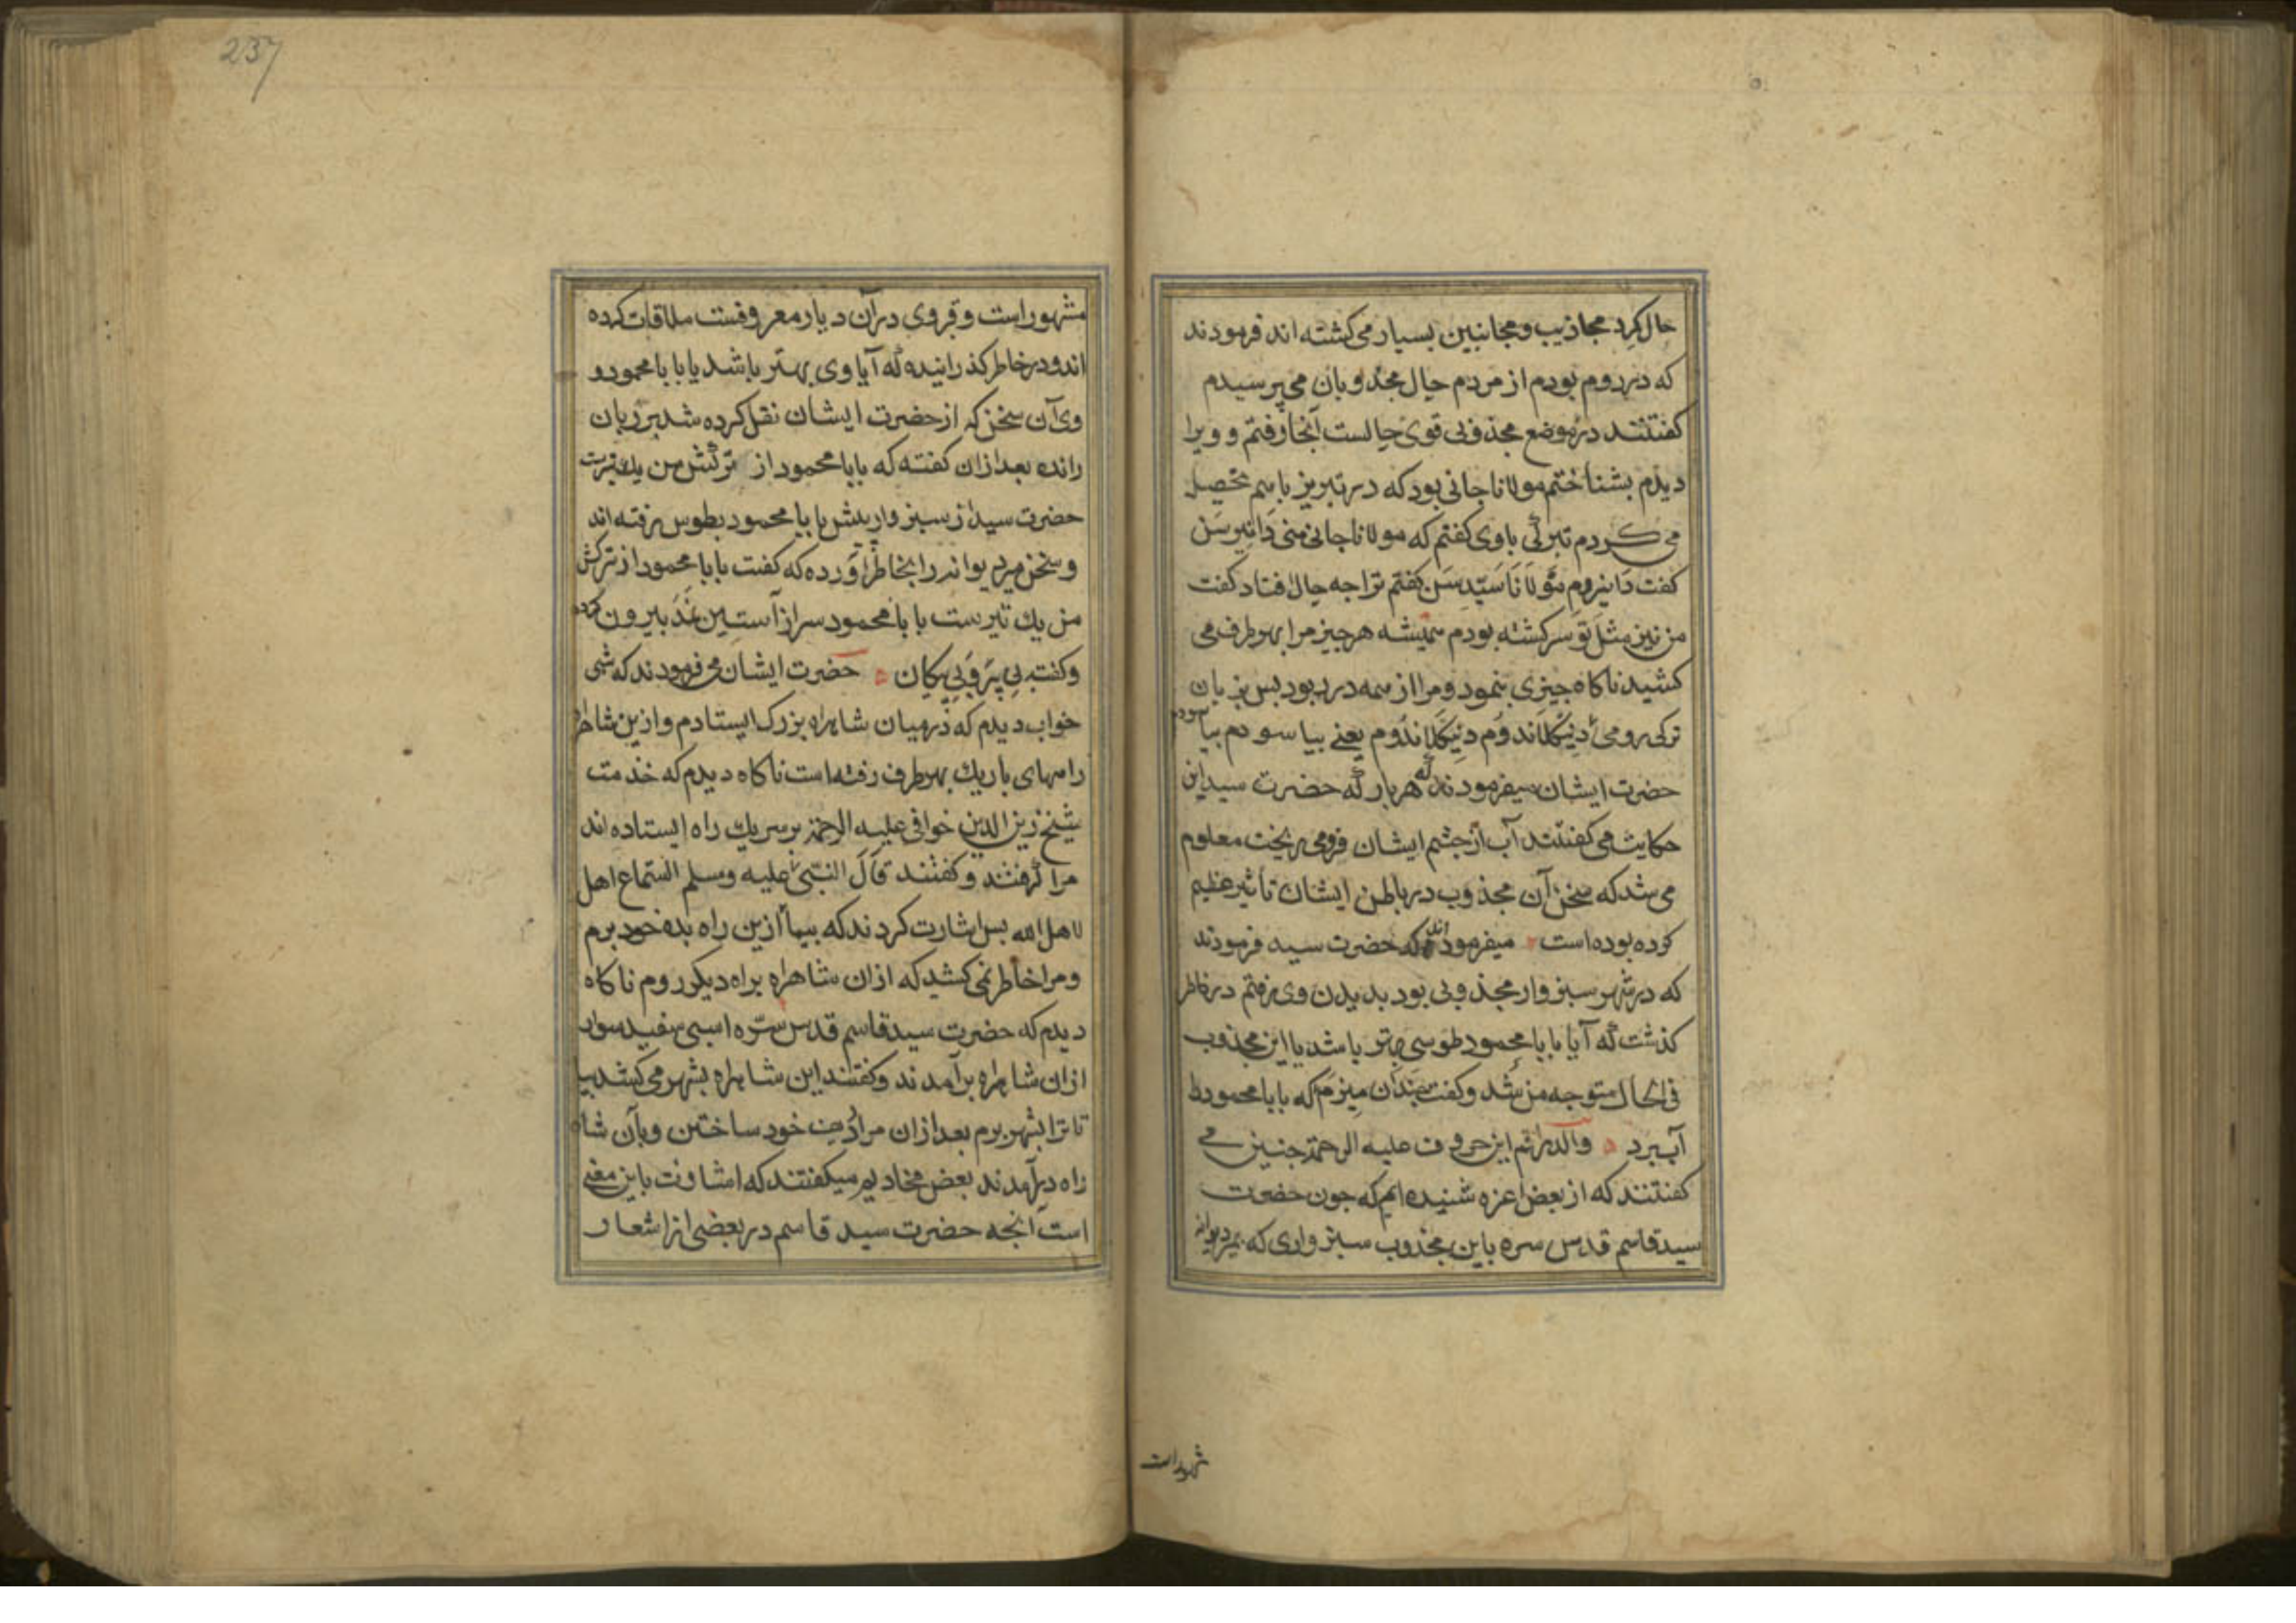 حال کرد مجاذیب و مجانین بسیار می کشته اند فرمودند
که در روم بودم از مردم حال مجذوبان می پرسیدم
کفتند در موضع مجذوبی قوی حالست آنجا رفتم و ویرا
دیدم بشناختم مولانا جانی بود که در تبریز باسم تحصیل
می کردم ترکی باوی کفتم که مولانا جانی منی دانیرسن
کفت دانیروم مولانا سیدسن کفتم ترا جه حال افتاد کفت
من نیز مثل تو سرکشته بودم همیشه هر جیز مرا بهر طرف می
کشید ناکاه جیزی بنمود و مرا از همه در ربود بس بزبان
ترکی رومی دینکلاندوم دینکلاندوم یعنی بیاسودم بیاسودم
حضرت ایشان میفرمودند که هر بار که حضرت سید این
حکایت می کفتند آب از جشم ایشان فرو می ریخت معلوم
می شد که سخن آن مجذوب در باطن ایشان تأثیر عظیم
کرده بوده است میفرمودند که حضرت سید فرمودند
که در شهر سبزوار مجذوبی بود بدیدن وی رفتم در خاطر
کذشت که آیا بابا محمود طوسی بهتر باشد یا این مجذوب
فی الحال متوجه من شد و کفت جندان میزم که بابا محمود را
آب برد والد راقم این حروف علیه الرحمة جنین می
کفتند که از بعض اعزه شنیده ایم که جون حضرت
سید قاسم قدس سره باین مجذوب سبزواری که بمرد دیوانه
شهور است
237
مشهور است و قبر وی در آن دیار معروفست ملاقات کرده
اند و در خاطر کذرانیده که آیا وی بهتر باشد یا بابا محمود و
وی آن سخن که از حضرت ایشان نقل کرده شد بر زبان
رانده بعد ازان کفته که بابا محمود از ترکش من یک تیرست
حضرت سید از سبزوار بیش بابا محمود بطوس رفته اند
و سخن مردم دیوانه را بخاطر آورده که کفت بابا محمود از ترکش
من یک تیرست بابا محمود سر از آستین نمد بیرون کرده
و کفت بی پر و بی پیکان حضرت ایشان می فرمودند که شبی
خواب دیدم که در میان شاهراه بزرک ایستادم و ازین شاهراه
راههای باریک بهر طرف رفته است ناکاه دیدم که خدمت
شیخ زین الدین خوافی علیه الرحمة بر سر یک راه ایستاده اند
مرا کرفتند و کفتند قال النبی علیه وسلم السماع اهل
لاهل الله بس اشارت کردند که بیا ازین راه بده خود برم
و مرا خاطر نمی کشید که ازان شاهراه براه دیکر روم ناکاه
دیدم که حضرت سید قاسم قدس سره اسبی سفید سوار
ازان شاهراه برآمدند و کفتند این شاهراه بشهر می کشد بیا
تا ترا بشهر برم بعد ازان مرا ردیف خود ساختن وبآن شاه
راه درآمدند بعض مخادیم میکفتند که اشارت باین معنی
است آنجه حضرت سید قاسم در بعضی از اشعار